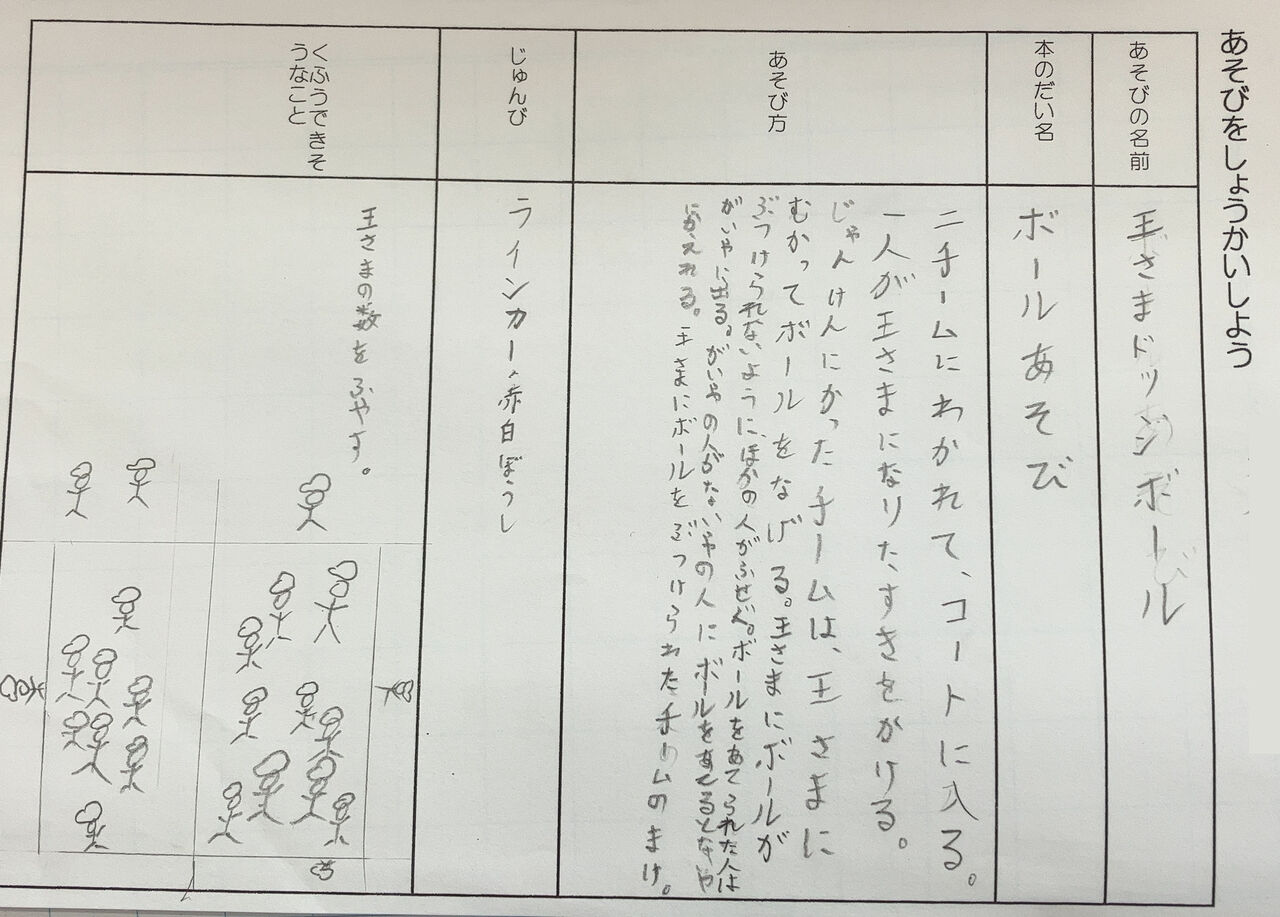 あそびをしょうかいしよう
あそびの名前
王さまドッジボール
本のだい名
ボールあそび
あそび方
二チームにわかれて、コートに入る。
一人が王さまになりたすきをかける。
じゃんけんにかったチームは、王さまに
むかってボールをなげる。王さまにボールが
ぶつけられないように、ほかの人がふせぐ。ボールをあてられた人は
がいやに出る。がいやの人がないやの人にボールをあてるとないや
にかえれる。王さまにボールをぶつけられたチームのまけ。
じゅんび
ラインカー、赤白ぼうし
くふうできそ
うなこと
王さまの数をふやす。